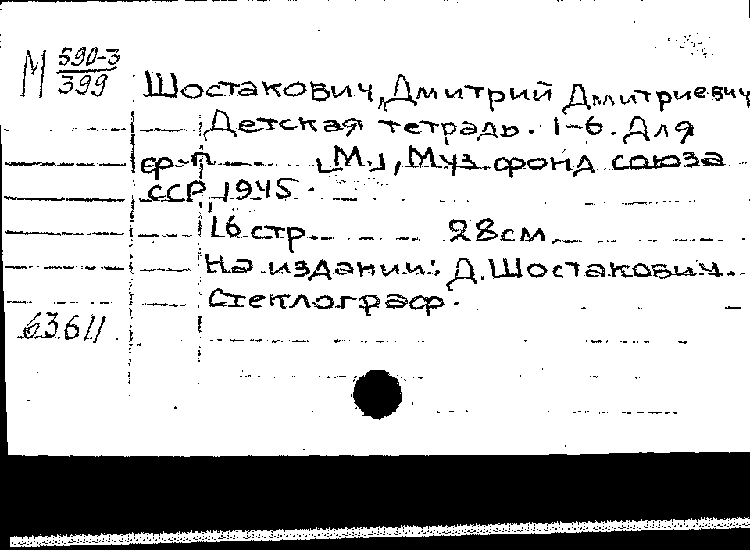 М 590-3
399
Шостакович, Дмитрий Дмитриевич
Детская тетрадь. 1-6. Для
фр-п [М.], Муз. фонд союза
ССР, 1945.
16 стр. 28см.
На издании: Д. Шостакович.
Стеклограф.
63611